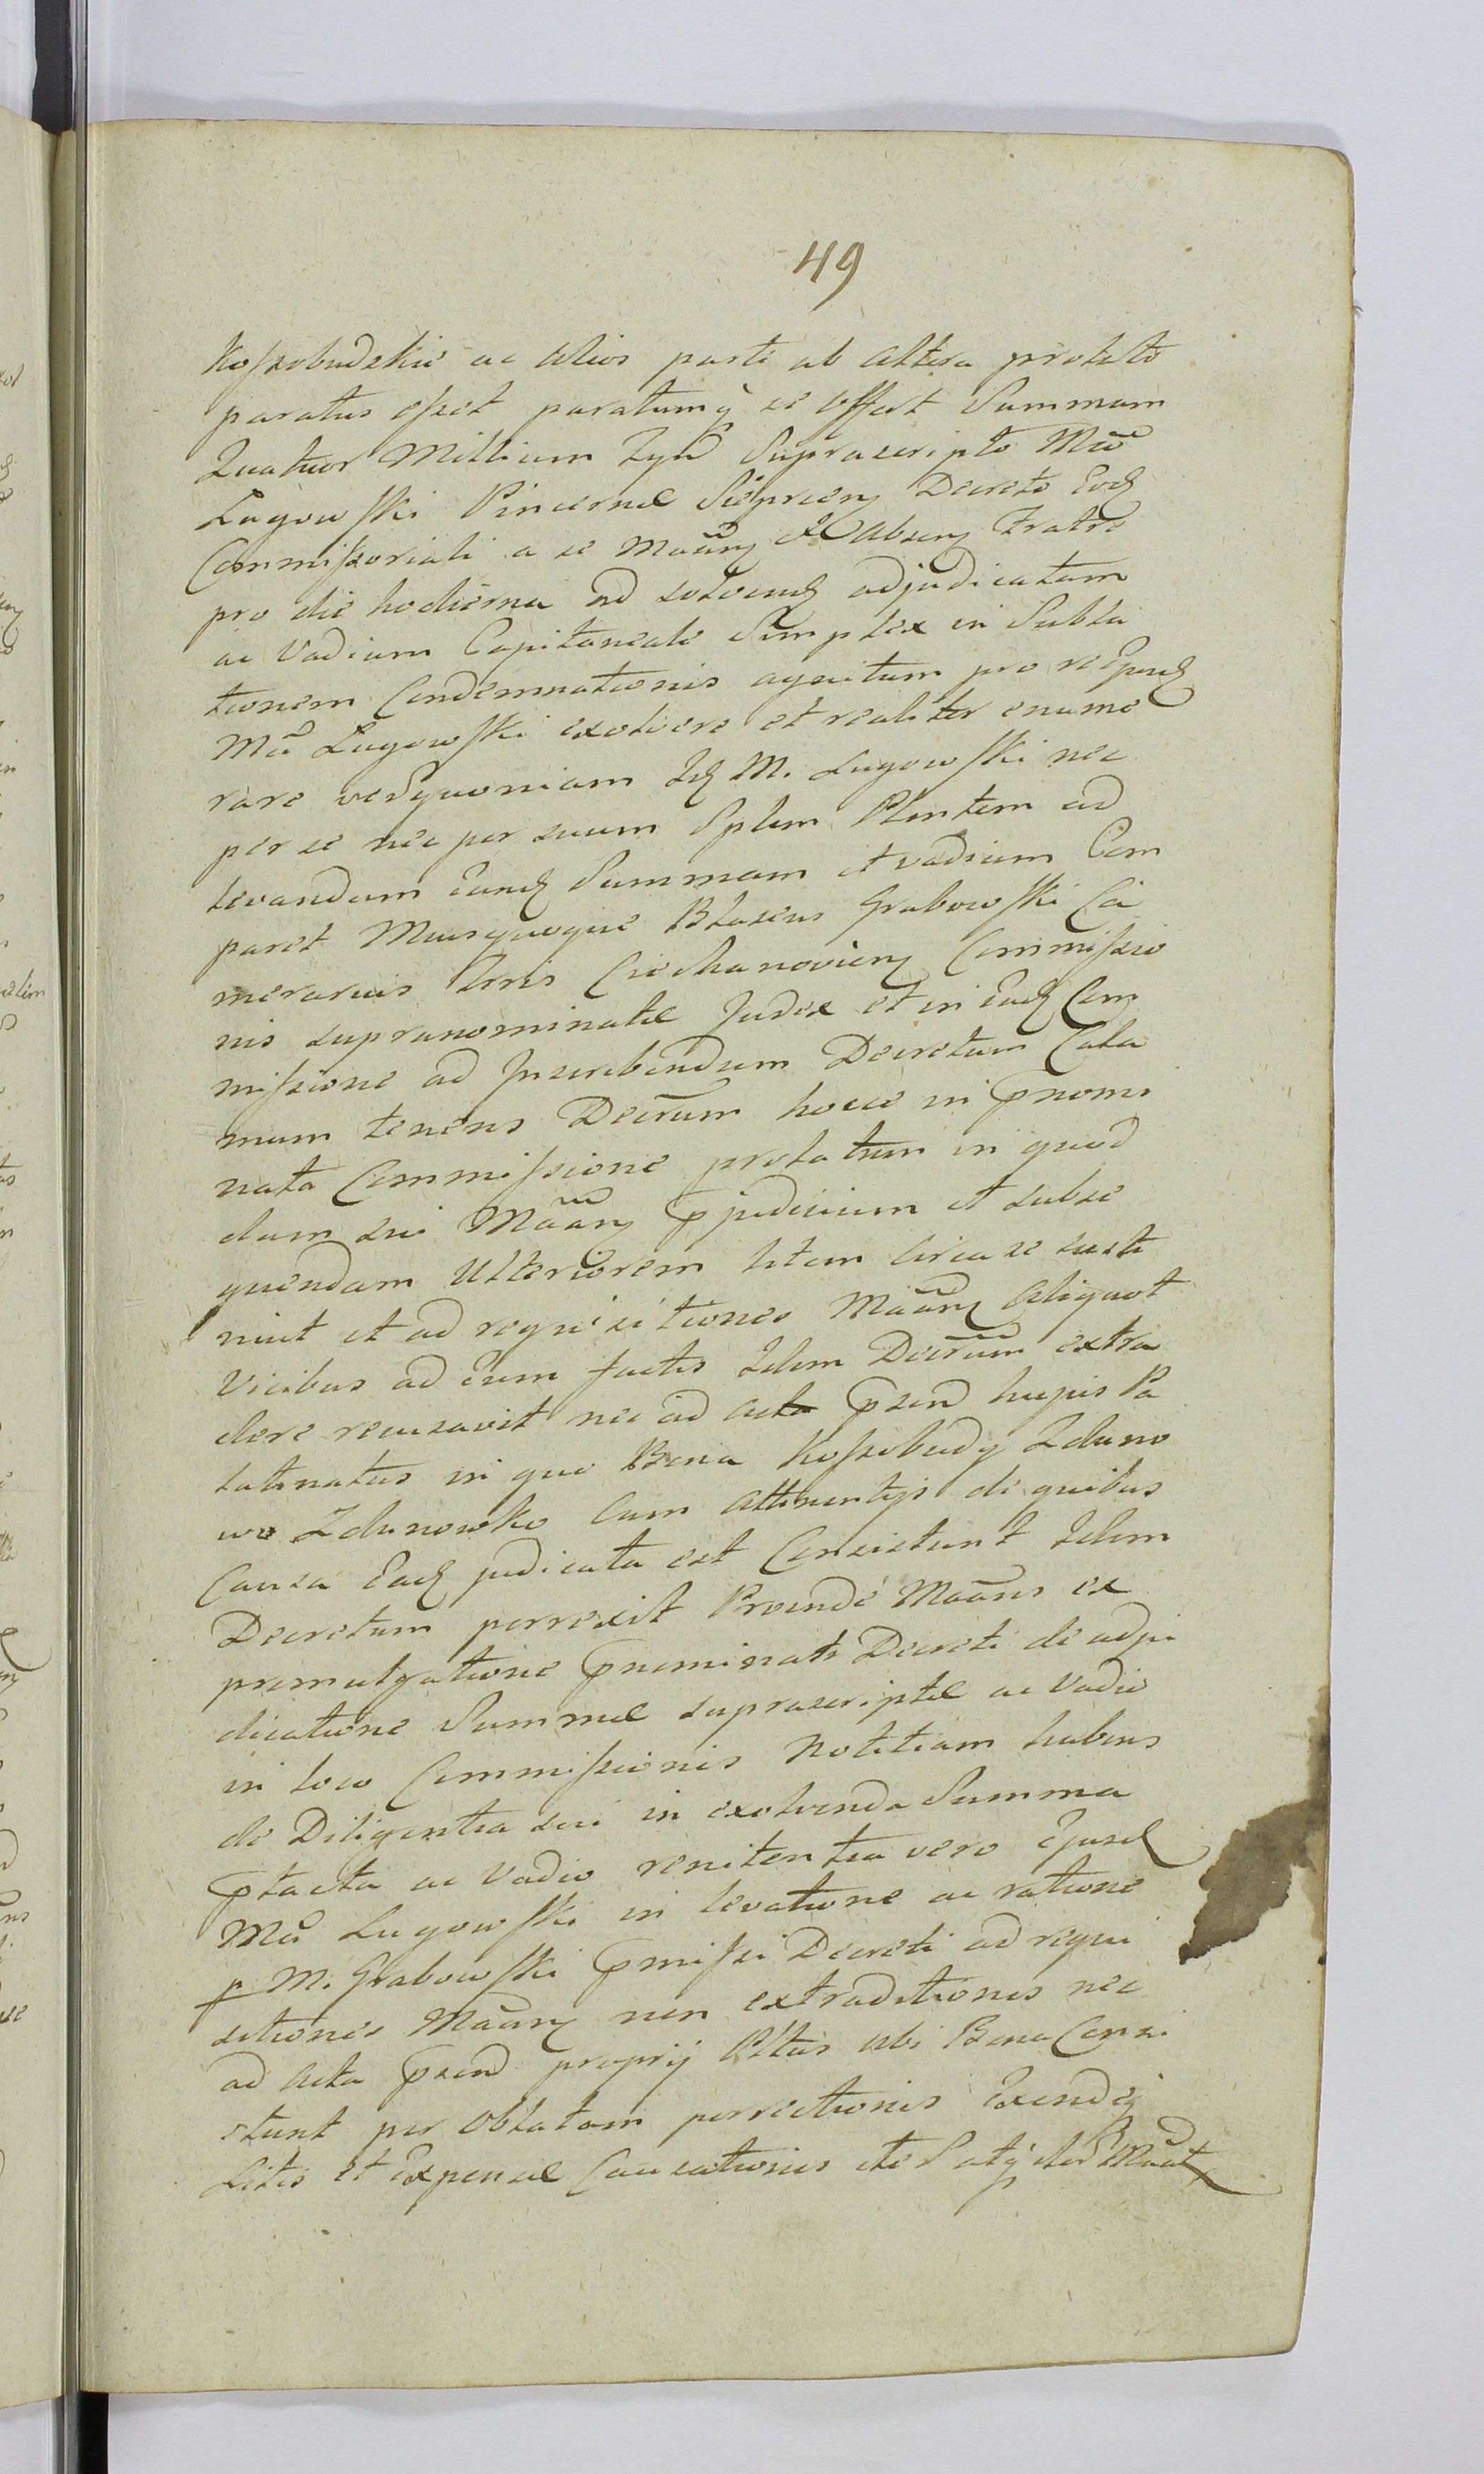 49
Koszobudzkie ac alios parte ab altera prolato
paratus esset paratumq se offert Summam
Quatuor Millium Suprascripto Mco
Lugowski Pincernæ Decreto Eod
Commissoriali a se et absen Fratre
pro die hodierna ad solvend adjudicatam
ac Vadium Capitaneale Simplex in Subla
tionem Condemnationis agnitum pro
Lugowski exolvere et realiter enume
rare verum quoniam M. Lugowski nec
per se nec per suum Splem Plentem ad
levandum Eand Summam et vadium Com
paret Mcusquoque Blasius Grabowski Ca
merarius Trris Ciechanovien Commissio
nis supranominatæ Judex et in Ead Com
missione ad Inscribendum Decretum Cala
mum tenens Decrum hocce in pnomi
nata Commissione prolatum in quod
dam sui pjudicium et subse
quendam Ulteriorem litem circa se susti
nuit et ad requisitiones aliquot
Vicibus ad Eum factis Idem Decrum extra
dere recusavit nec ad acta psend hujus Pa
latinatus in quo Bona Koszobudy Zduno
wo Zdunowko Cum attinentijs de quibus
Causa Ead judicata est Consistunt Idem
Decretum porrexit Proinde ex
promulgatione pnominati Decreti de adju
dicatione Summæ suprascriptæ ac Vadio
in loco Commissionis Notitiam habens
de Diligentia sui in exolvenda Summa
ptacta ac Vadio renitentia vero Ejusd
Lugowski in levatione ac ratione
p M. Grabowski pmissi Decreti ad requi
sitiones non extraditionis nec
ad Acta psend proprij Pltus ubi Bona Consi
stunt per Oblatam porrectionis
Litis et Expensæ Causationis